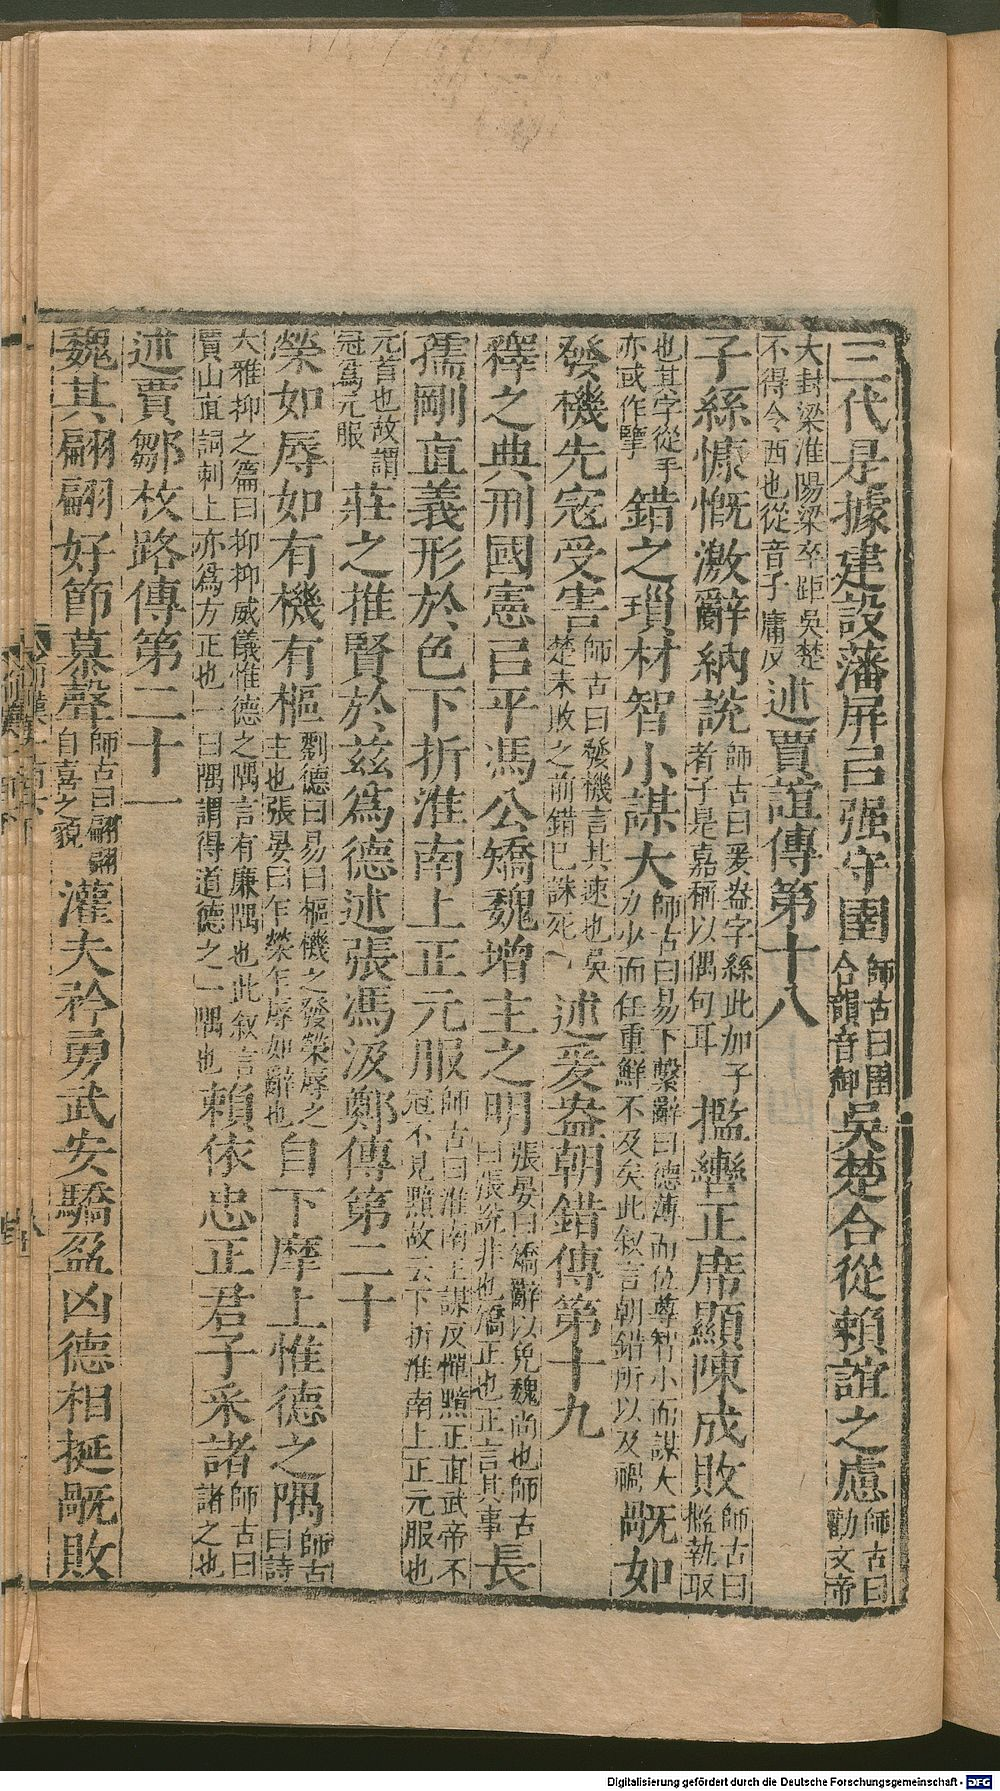 三代是據建設藩屏㠯强守圉師古曰圉合韻音御吳楚合從賴誼之慮師古曰勸文帝
大封梁淮陽梁卒距吳楚不得令西也從音子庸反述賈誼傳第十八
子絲慷慨激辭納說師古曰爰盎字絲此加子者子是嘉稱以偶句耳㩜轡正席顯陳成敗師古曰㩜執取
也其字從手亦或作擥錯之瑣材智小謀大師古曰易下繫辭曰德薄而位尊智小而謀大力少而任重鮮不及矣此叙言朝錯所以及禍旤如
發機先寇受害師古曰發機言其速也吳楚未敗之前錯巳誅死述爰盎朝錯傳第十九
釋之典刑國憲㠯平馮公矯魏增主之明張晏曰矯辭以免魏尚也師古曰張說非也矯正也正言其事長
孺剛直義形於色下折淮南上正元服師古曰淮南王謀反憚黯正直武帝不冠不見黯故云下折淮南上正元服也
元首也故謂冠爲元服莊之推賢於茲爲德述張馮汲鄭傳第二十
榮如辱如有機有樞劉德曰易曰樞機之發榮辱之主也張晏曰乍榮乍辱如辭也自下摩上惟德之隅師古曰詩
大雅抑之篇曰抑抑威儀惟德之隅言有廉隅也此叙言賈山直詞刺上亦爲方正也一曰隅謂得道德之一隅也賴依忠正君子采諸師古曰諸之也
述賈鄒枚路傳第二十一
魏其翩翩好節慕聲師古曰翩翩自喜之貌灌夫矜勇武安驕盈凶德相挻旤敗
Digitalisierung gefördert durch die Deutsche Forschungsgemeinschaft - DFG